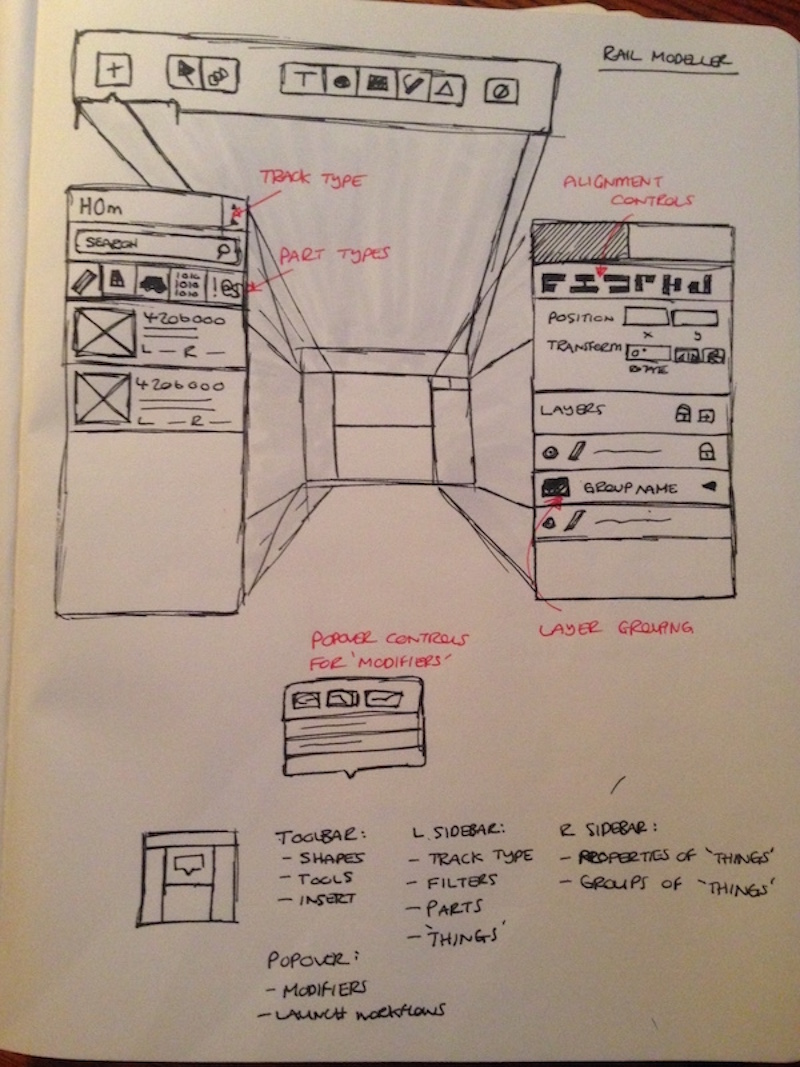 RAIL MODELLER
T
TRACK TYPE
HOm
SEARCH
PART TYPES
1010
1010
1010
4206000
L — R —
4206000
L — R —
ALIGNMENT
CONTROLS
POSITION
X Y
TRANSFORM 0°
ROTATE
LAYERS
GROUP NAME
LAYER GROUPING
POPOVER CONTROLS
FOR 'MODIFIERS'
TOOLBAR:
- SHAPES
- TOOLS
- INSERT
L. SIDEBAR:
- TRACK TYPE
- FILTERS
- PARTS
- 'THINGS'
R SIDEBAR:
- PROPERTIES OF 'THINGS'
- GROUPS OF 'THINGS'
POPOVER:
- MODIFIERS
- LAUNCH WORKFLOWS